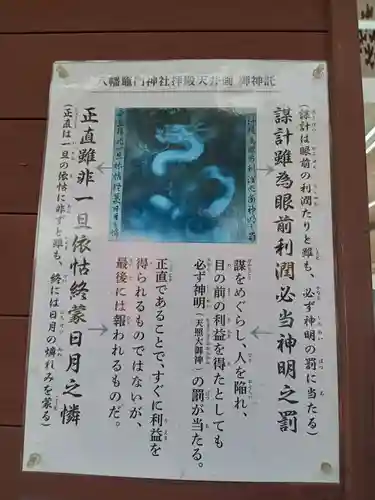 八幡竈門神社拝殿天井画 御神託
(謀計は眼前の利潤たりと雖も、必ず神明の罰に当たる)
謀計雖為眼前利潤必当神明之罰
謀をめぐらし、人を陥れ、
目の前の利益を得たとしても
必ず神明(天照大御神)の罰が当たる。
正直であることで、すぐに利益を
得られるものではないが、
最後には報われるものだ。
正直雖非一旦依怙終蒙日月之憐
(正直は一旦の依怙に非ずと雖も、終には日月の憐れみを蒙る)